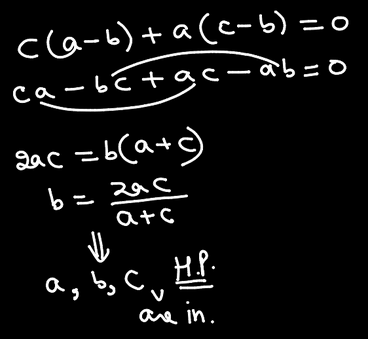 c(a-b) + a(c-b) = 0
ca - bc + ac - ab = 0
2ac = b(a+c)
b = 2ac / a+c
⇓
a, b, c, H.P.
are in.